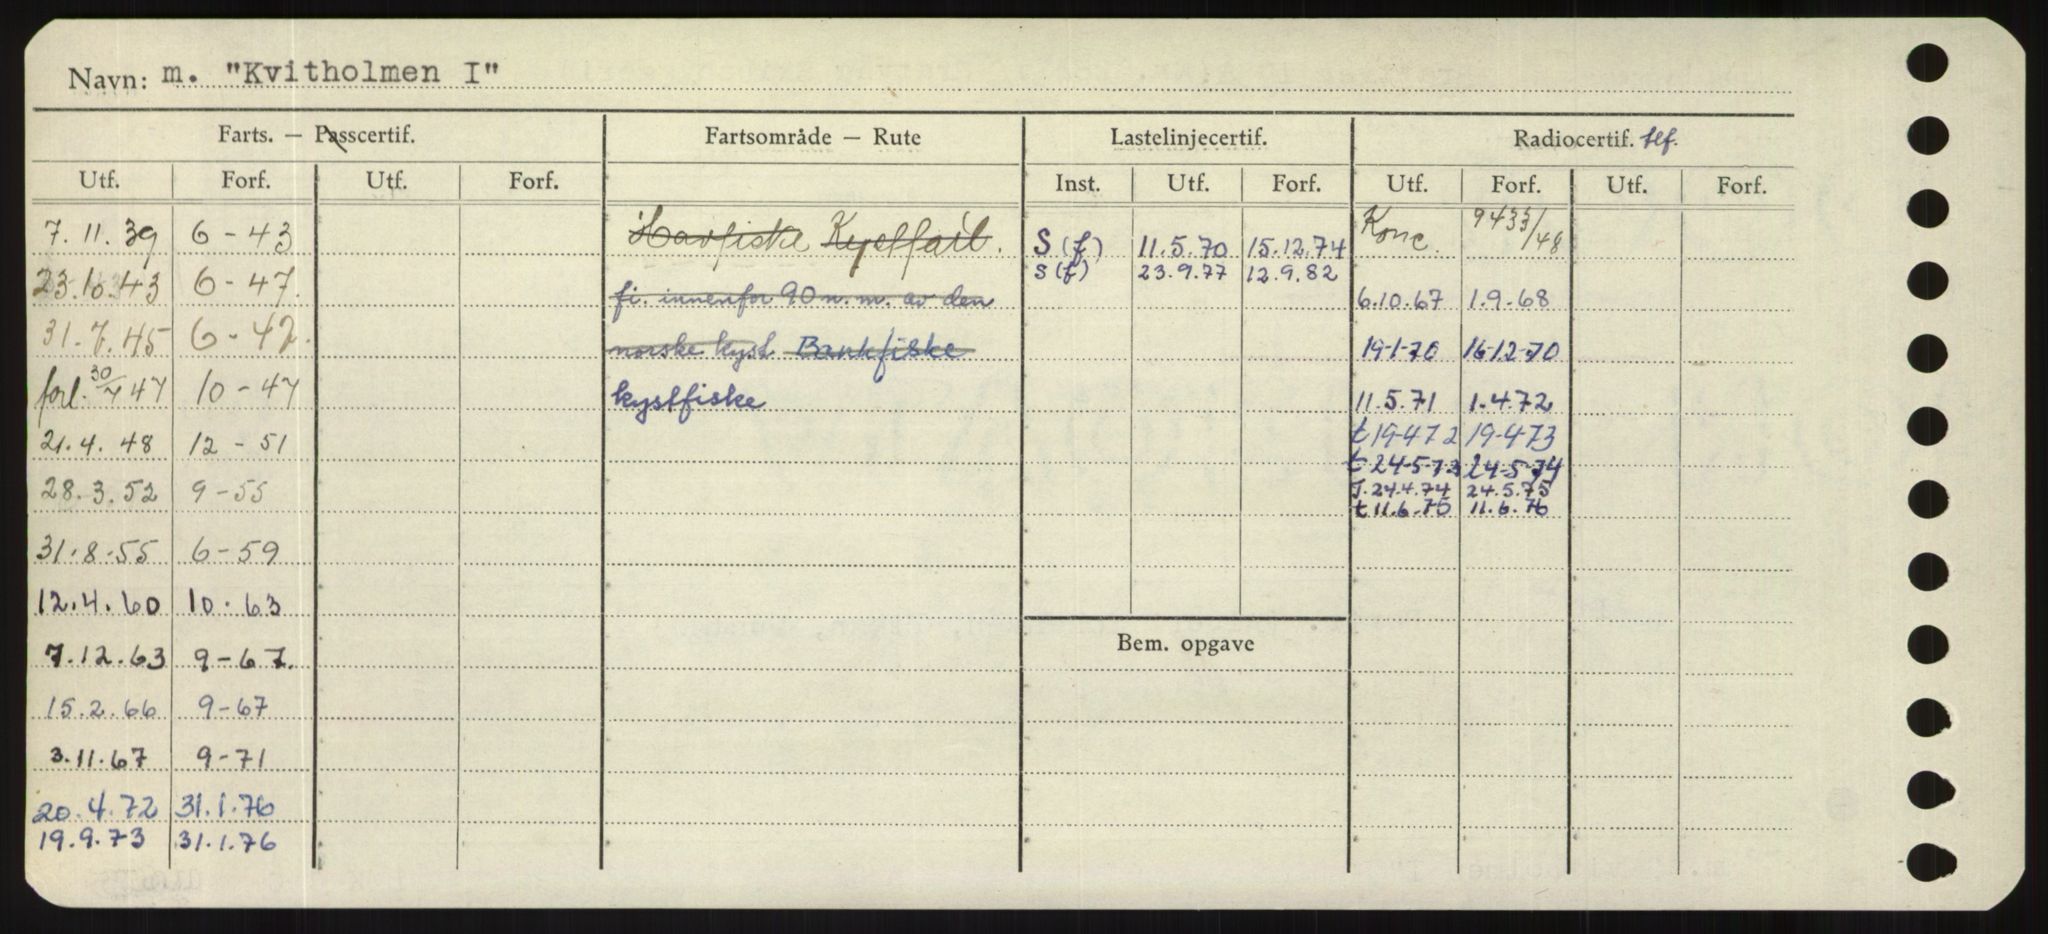 Navn: m. "Kvitholmen I"
Farts. — Passcertif. Fartsområde — Rute Lastelinjecertif. Radiocertif. tlf.
Utf. Forf. Utf. Forf. Inst. Utf. Forf. Utf. Forf. Utf. Forf.
7.11.39 6-43 Havfiske Kystfart. S (f) 11.5.70 15.12.74 Konc. 9435/48
23.10.43 6-47. S (f) 23.9.77 12.9.82
fi. innenfor 90 n.m. av den 6.10.67 1.9.68
31.7.45 6-47. norske kyst Bankfiske 19-1-70 16-12-70
forl. 30/7 47 10-47 kystfiske 11.5.71 1.4.72
21.4.48 12-51 t 19-4-72 19-4-73
t 24-5-73 24-5-74
28.3.52 9-55 T. 24.4.74 24.5.75
t 11.6.75 11.6.76
31.8.55 6-59
12.4.60 10.63
Bem. opgave
7.12.63 9-67.
15.2.66 9-67
3.11.67 9-71
20.4.72 31.1.76
19.9.73 31.1.76